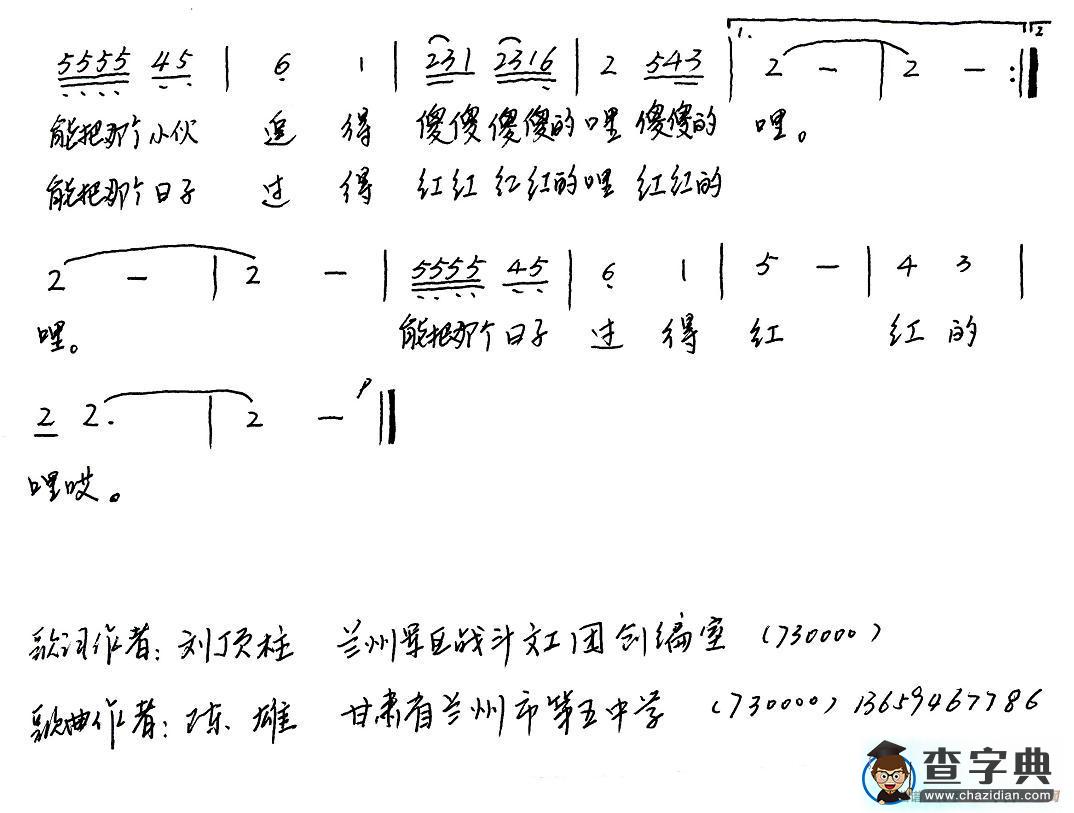 1. 2
5555 45 | 6 1 | 231 2316 | 2 543 | 2 - | 2 - :‖
能把那个小伙 追 得 傻傻傻傻的哩傻傻的 哩。
能把那个日子 过 得 红红红红的哩红红的
2 - | 2 - | 5555 45 | 6 1 | 5 - | 4 3 |
哩。 能把那个日子 过 得 红 红的
2 2. | 2 - ‖
哩哎。
歌词作者:刘顶柱 兰州军区战斗文工团创编室 (730000)
歌曲作者:陈雄 甘肃省兰州市第五中学 (730000) 13659467786
查字典
www.chazidian.com